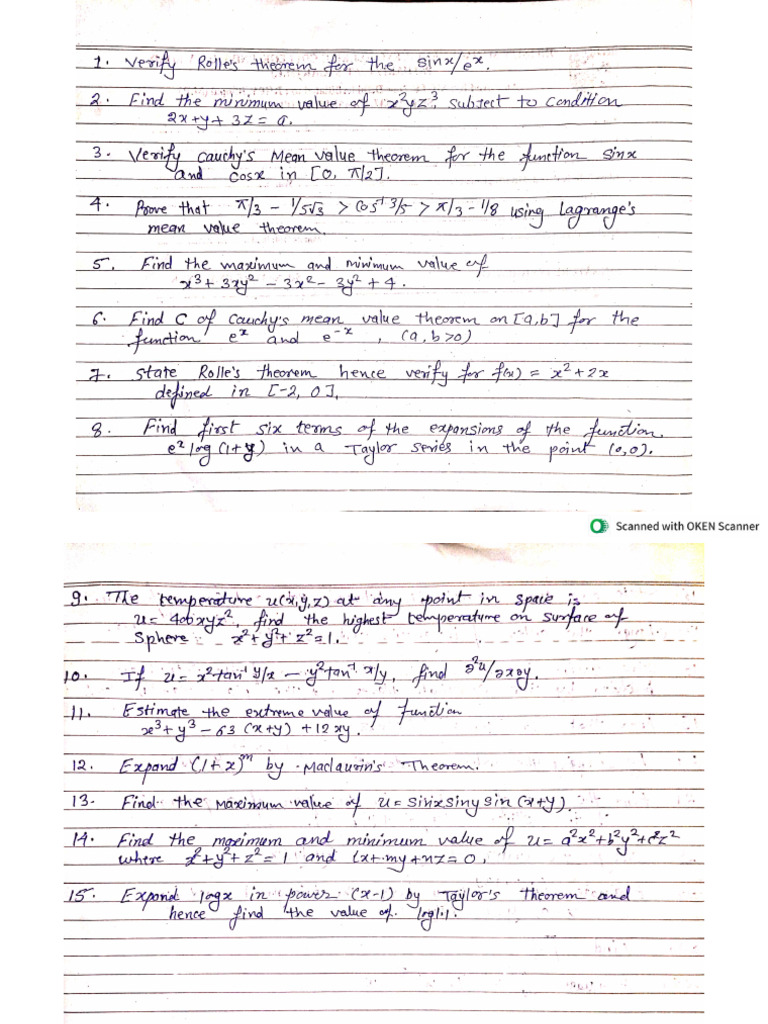 1. Verify Rolle's theorem for the sinx/eˣ.
2. Find the minimum value of x²yz³ subject to condition
2x+y+3z = a.
3. Verify Cauchy's Mean value theorem for the function sinx
and cosx in [0, π/2].
4. Prove that π/3 - 1/5√3 > cos⁻¹ 3/5 > π/3 - 1/8 using Lagrange's
mean value theorem.
5. Find the maximum and minimum value of
x³+ 3xy² - 3x² - 3y² + 4.
6. Find C of Cauchy's mean value theorem on [a,b] for the
function eˣ and e⁻ˣ, (a, b>0)
7. State Rolle's theorem hence verify for f(x) = x² + 2x
defined in [-2, 0].
8. Find first six terms of the expansions of the function
eˣ log (1+y) in a Taylor series in the point (0,0).
Scanned with OKEN Scanner
9. The temperature u(x,y,z) at any point in space is
u= 400xyz², find the highest temperature on surface of
Sphere x²+y²+z²=1.
10. If u= x²tan⁻¹ y/x - y²tan⁻¹ x/y, find ∂²u/∂x∂y.
11. Estimate the extreme value of function
x³+y³-63 (x+y) +12xy.
12. Expand (1+x)ᵐ by Maclaurin's Theorem.
13. Find the maximum value of u=sinxsinysin(x+y).
14. Find the maximum and minimum value of u= a²x²+b²y²+c²z²
where x²+y²+z²=1 and lx+my+nz=0.
15. Expand logx in power (x-1) by Taylor's theorem and
hence find the value of log1.1.